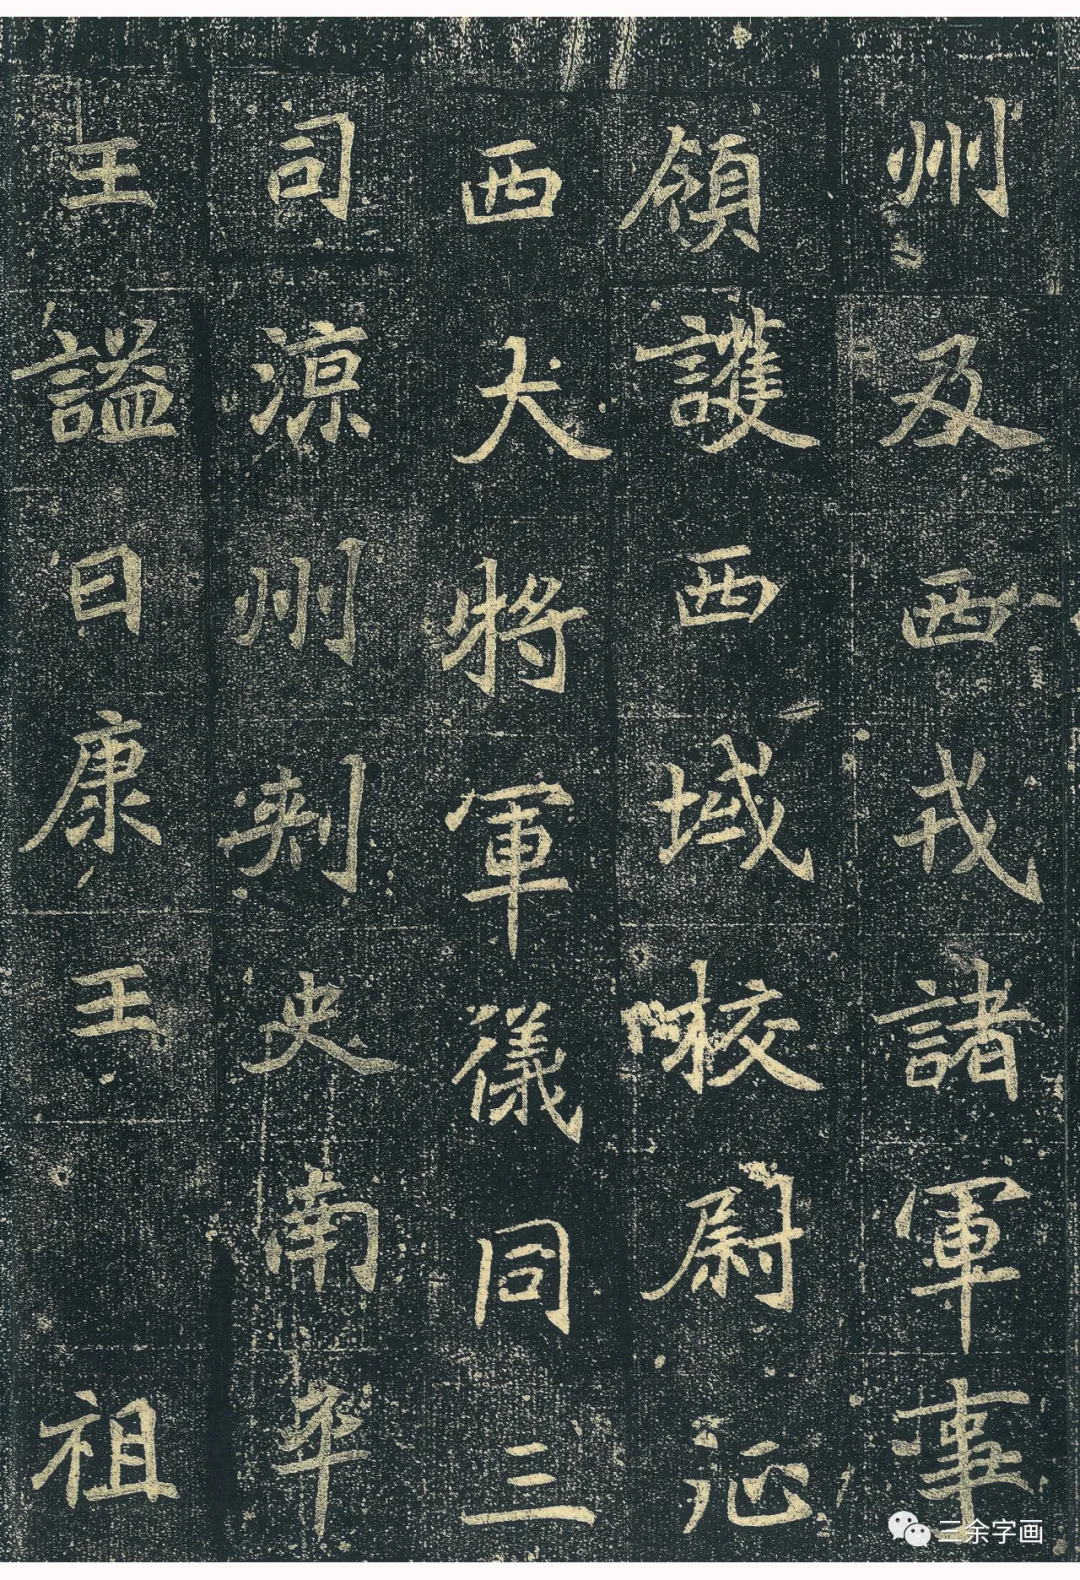 州及西戎諸軍事
領護西域校尉沁
西大將軍儀同三
司涼州刺史南平
王謚曰康王祖
三余字画